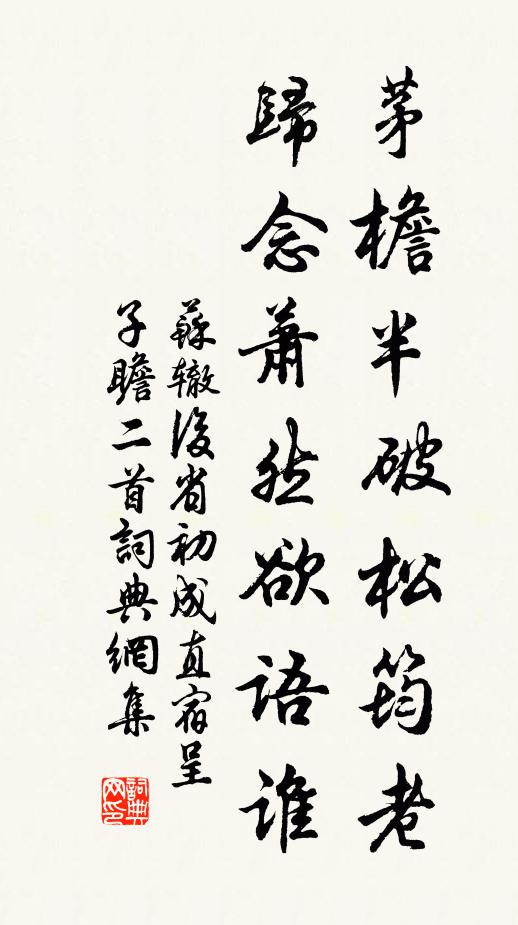 茅檐半破松筠老
歸念蕭然欲語誰
蘇辙後省初成直宿呈
子瞻二首詞典網集
詞典
网印